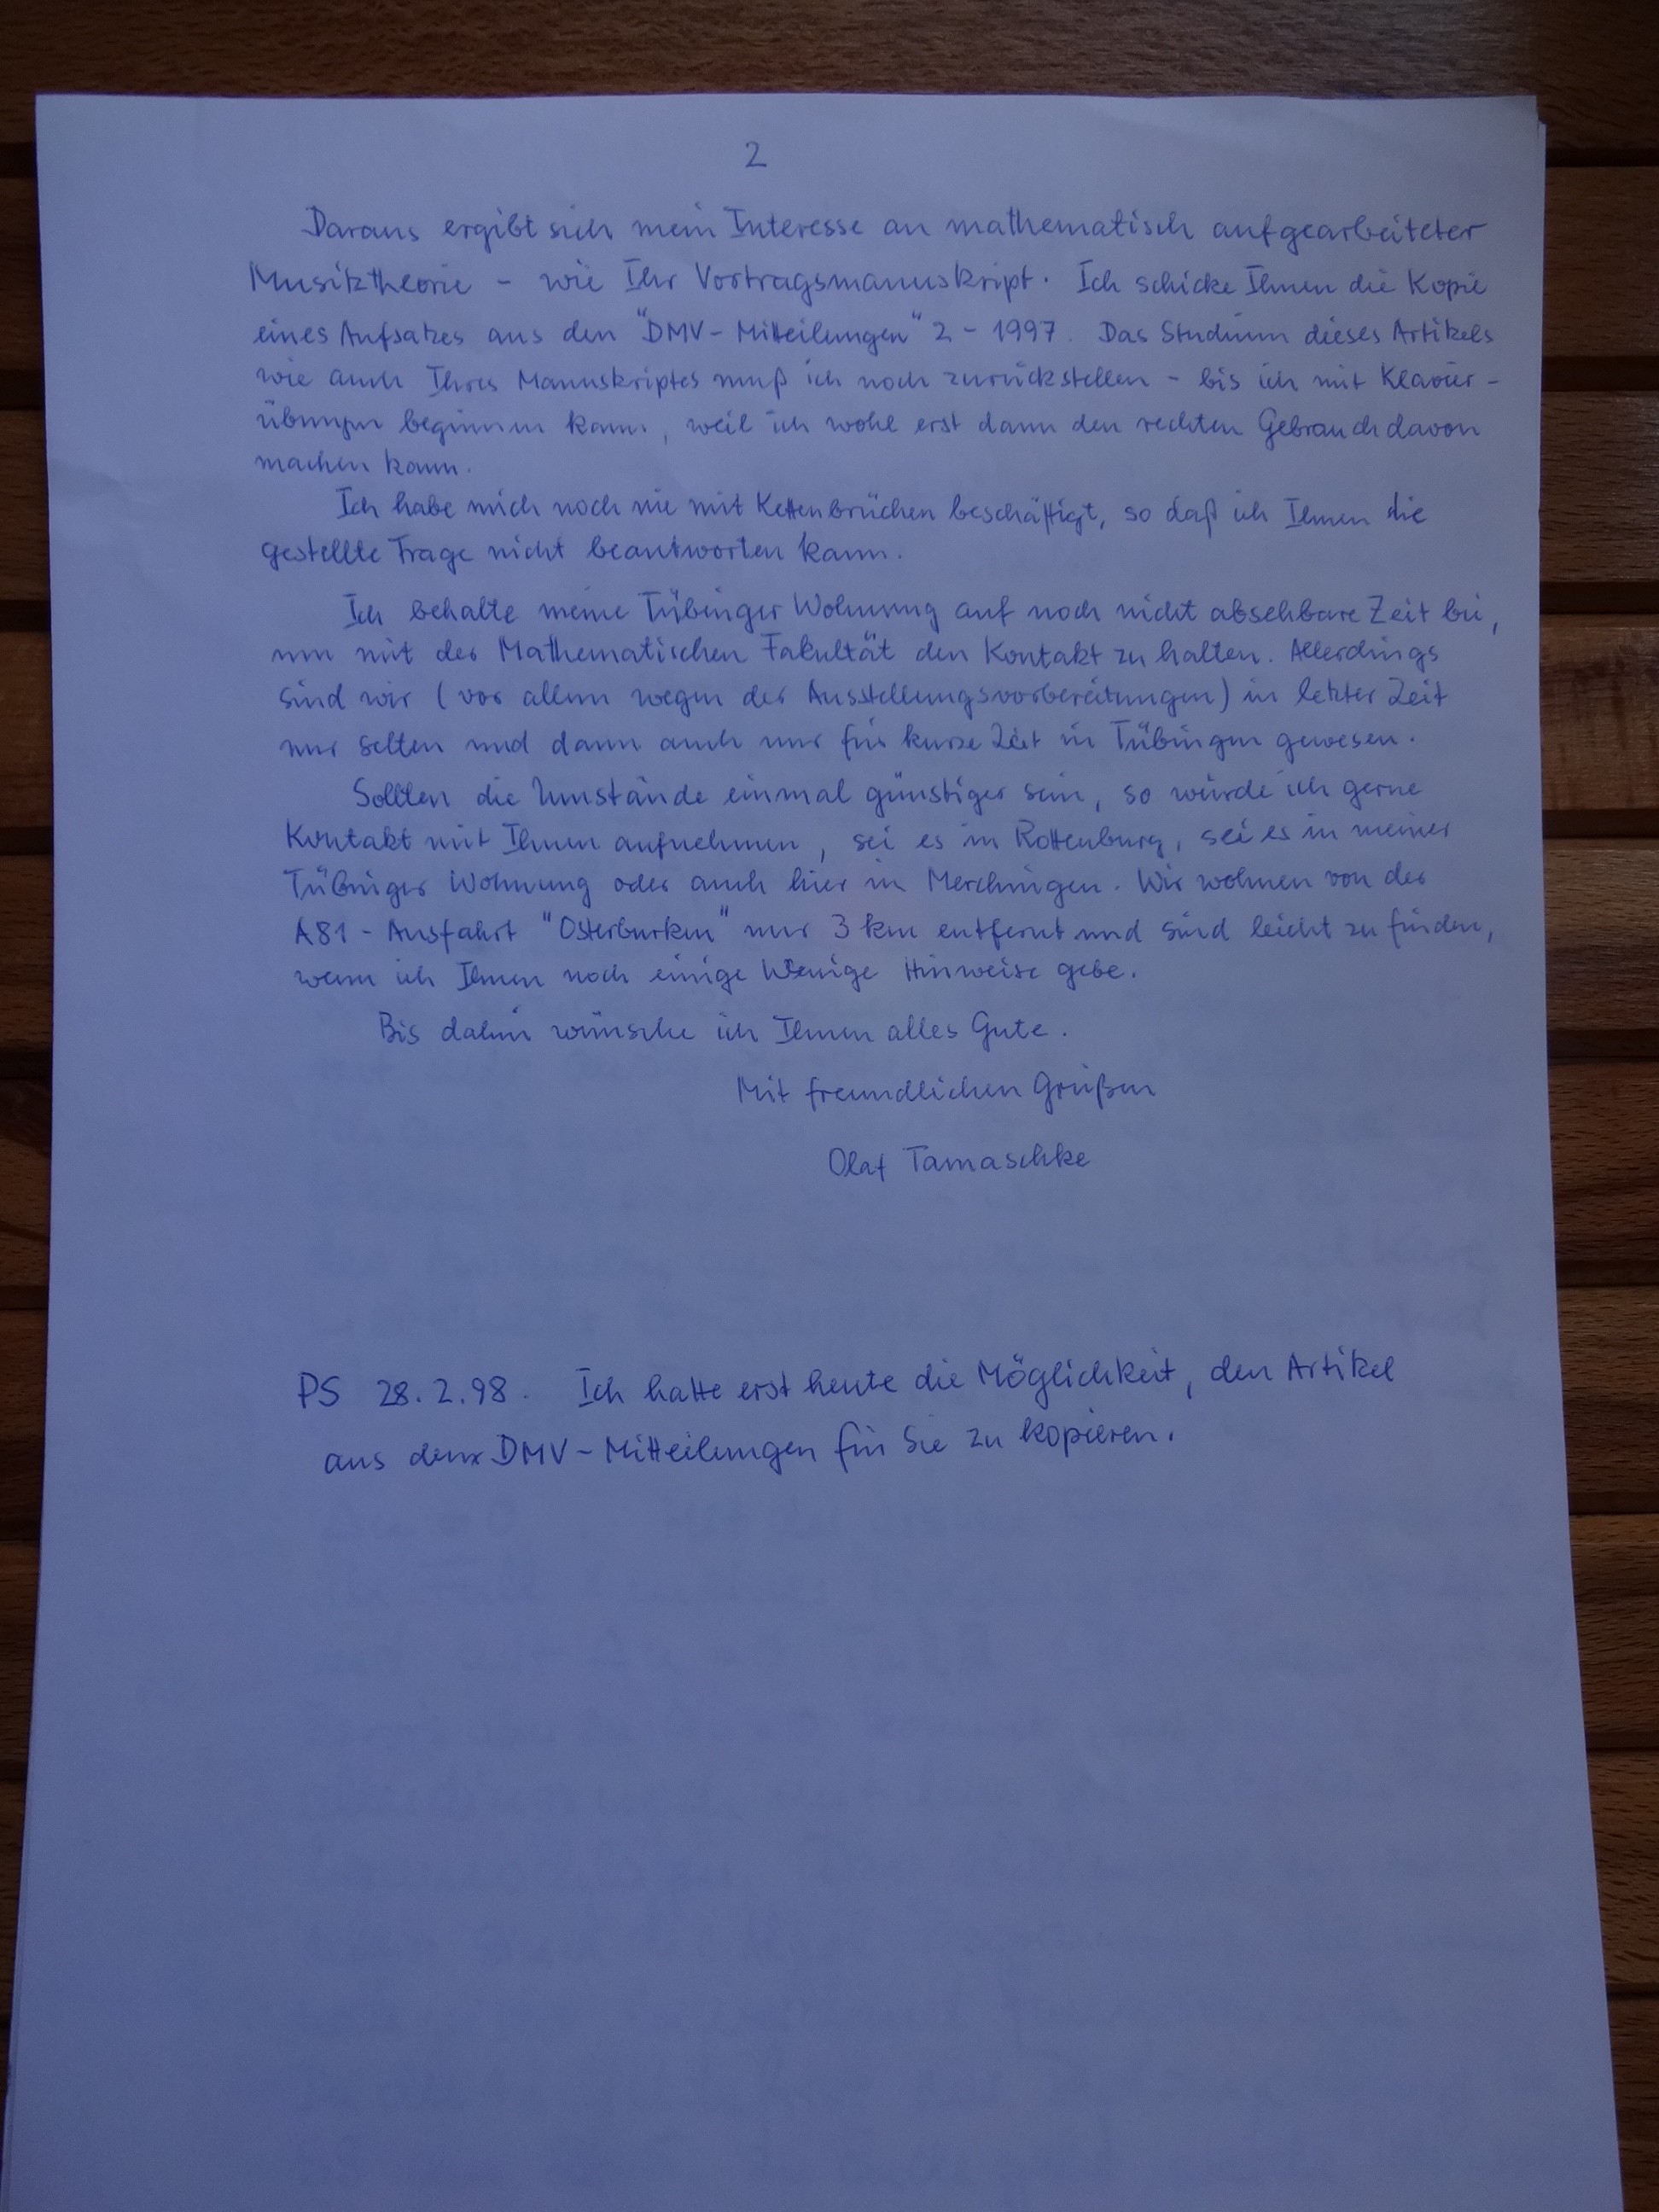 2
Daraus ergibt sich mein Interesse an mathematisch aufgearbeiteter
Musiktheorie - wie Ihr Vortragsmanuskript. Ich schicke Ihnen die Kopie
eines Aufsatzes aus den "DMV-Mitteilungen" 2-1997. Das Studium dieses Artikels
wie auch Ihres Manuskriptes muß ich noch zurückstellen - bis ich mit Klavier-
übungen beginnen kann, weil ich wohl erst dann den rechten Gebrauch davon
machen kann.
Ich habe mich noch nie mit Kettenbrüchen beschäftigt, so daß ich Ihnen die
gestellte Frage nicht beantworten kann.
Ich behalte meine Tübinger Wohnung auf noch nicht absehbare Zeit bei,
um mit der Mathematischen Fakultät den Kontakt zu halten. Allerdings
sind wir (vor allem wegen der Ausstellungsvorbereitungen) in letzter Zeit
nur selten und dann auch nur für kurze Zeit in Tübingen gewesen.
Sollten die Umstände einmal günstiger sein, so würde ich gerne
Kontakt mit Ihnen aufnehmen, sei es in Rottenburg, sei es in meiner
Tübinger Wohnung oder auch hier in Merchingen. Wir wohnen von der
A81-Ausfahrt "Osterburken" nur 3 km entfernt und sind leicht zu finden,
wenn ich Ihnen noch einige wenige Hinweise gebe.
Bis dahin wünsche ich Ihnen alles Gute.
Mit freundlichen Grüßen
Olaf Tamaschke
PS 28.2.98. Ich hatte erst heute die Möglichkeit, den Artikel
aus den DMV-Mitteilungen für Sie zu kopieren.